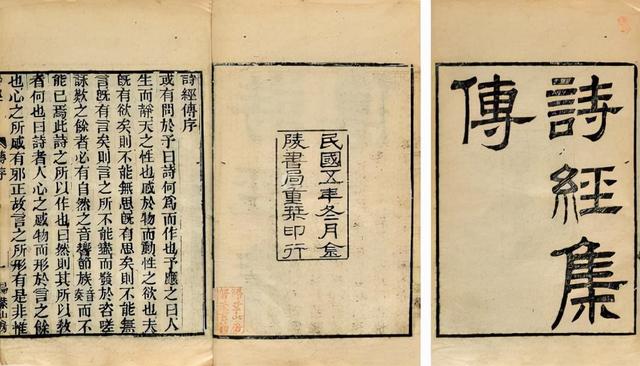 詩經集
傳
民國五年冬月金
陵書局重槧印行
詩經傳序
或有問於予曰詩何為而作也予應之曰人
生而靜天之性也感於物而動性之欲也夫
既有欲矣則不能無思既有思矣則不能無
言既有言矣則言之所不能盡而發於咨嗟
詠歎之餘者必有自然之音響節族音奏而不
能已焉此詩之所以作也曰然則其所以教
者何也曰詩者人心之感物而形於言之餘
也心之所感有邪正故言之所形有是非惟
傳序